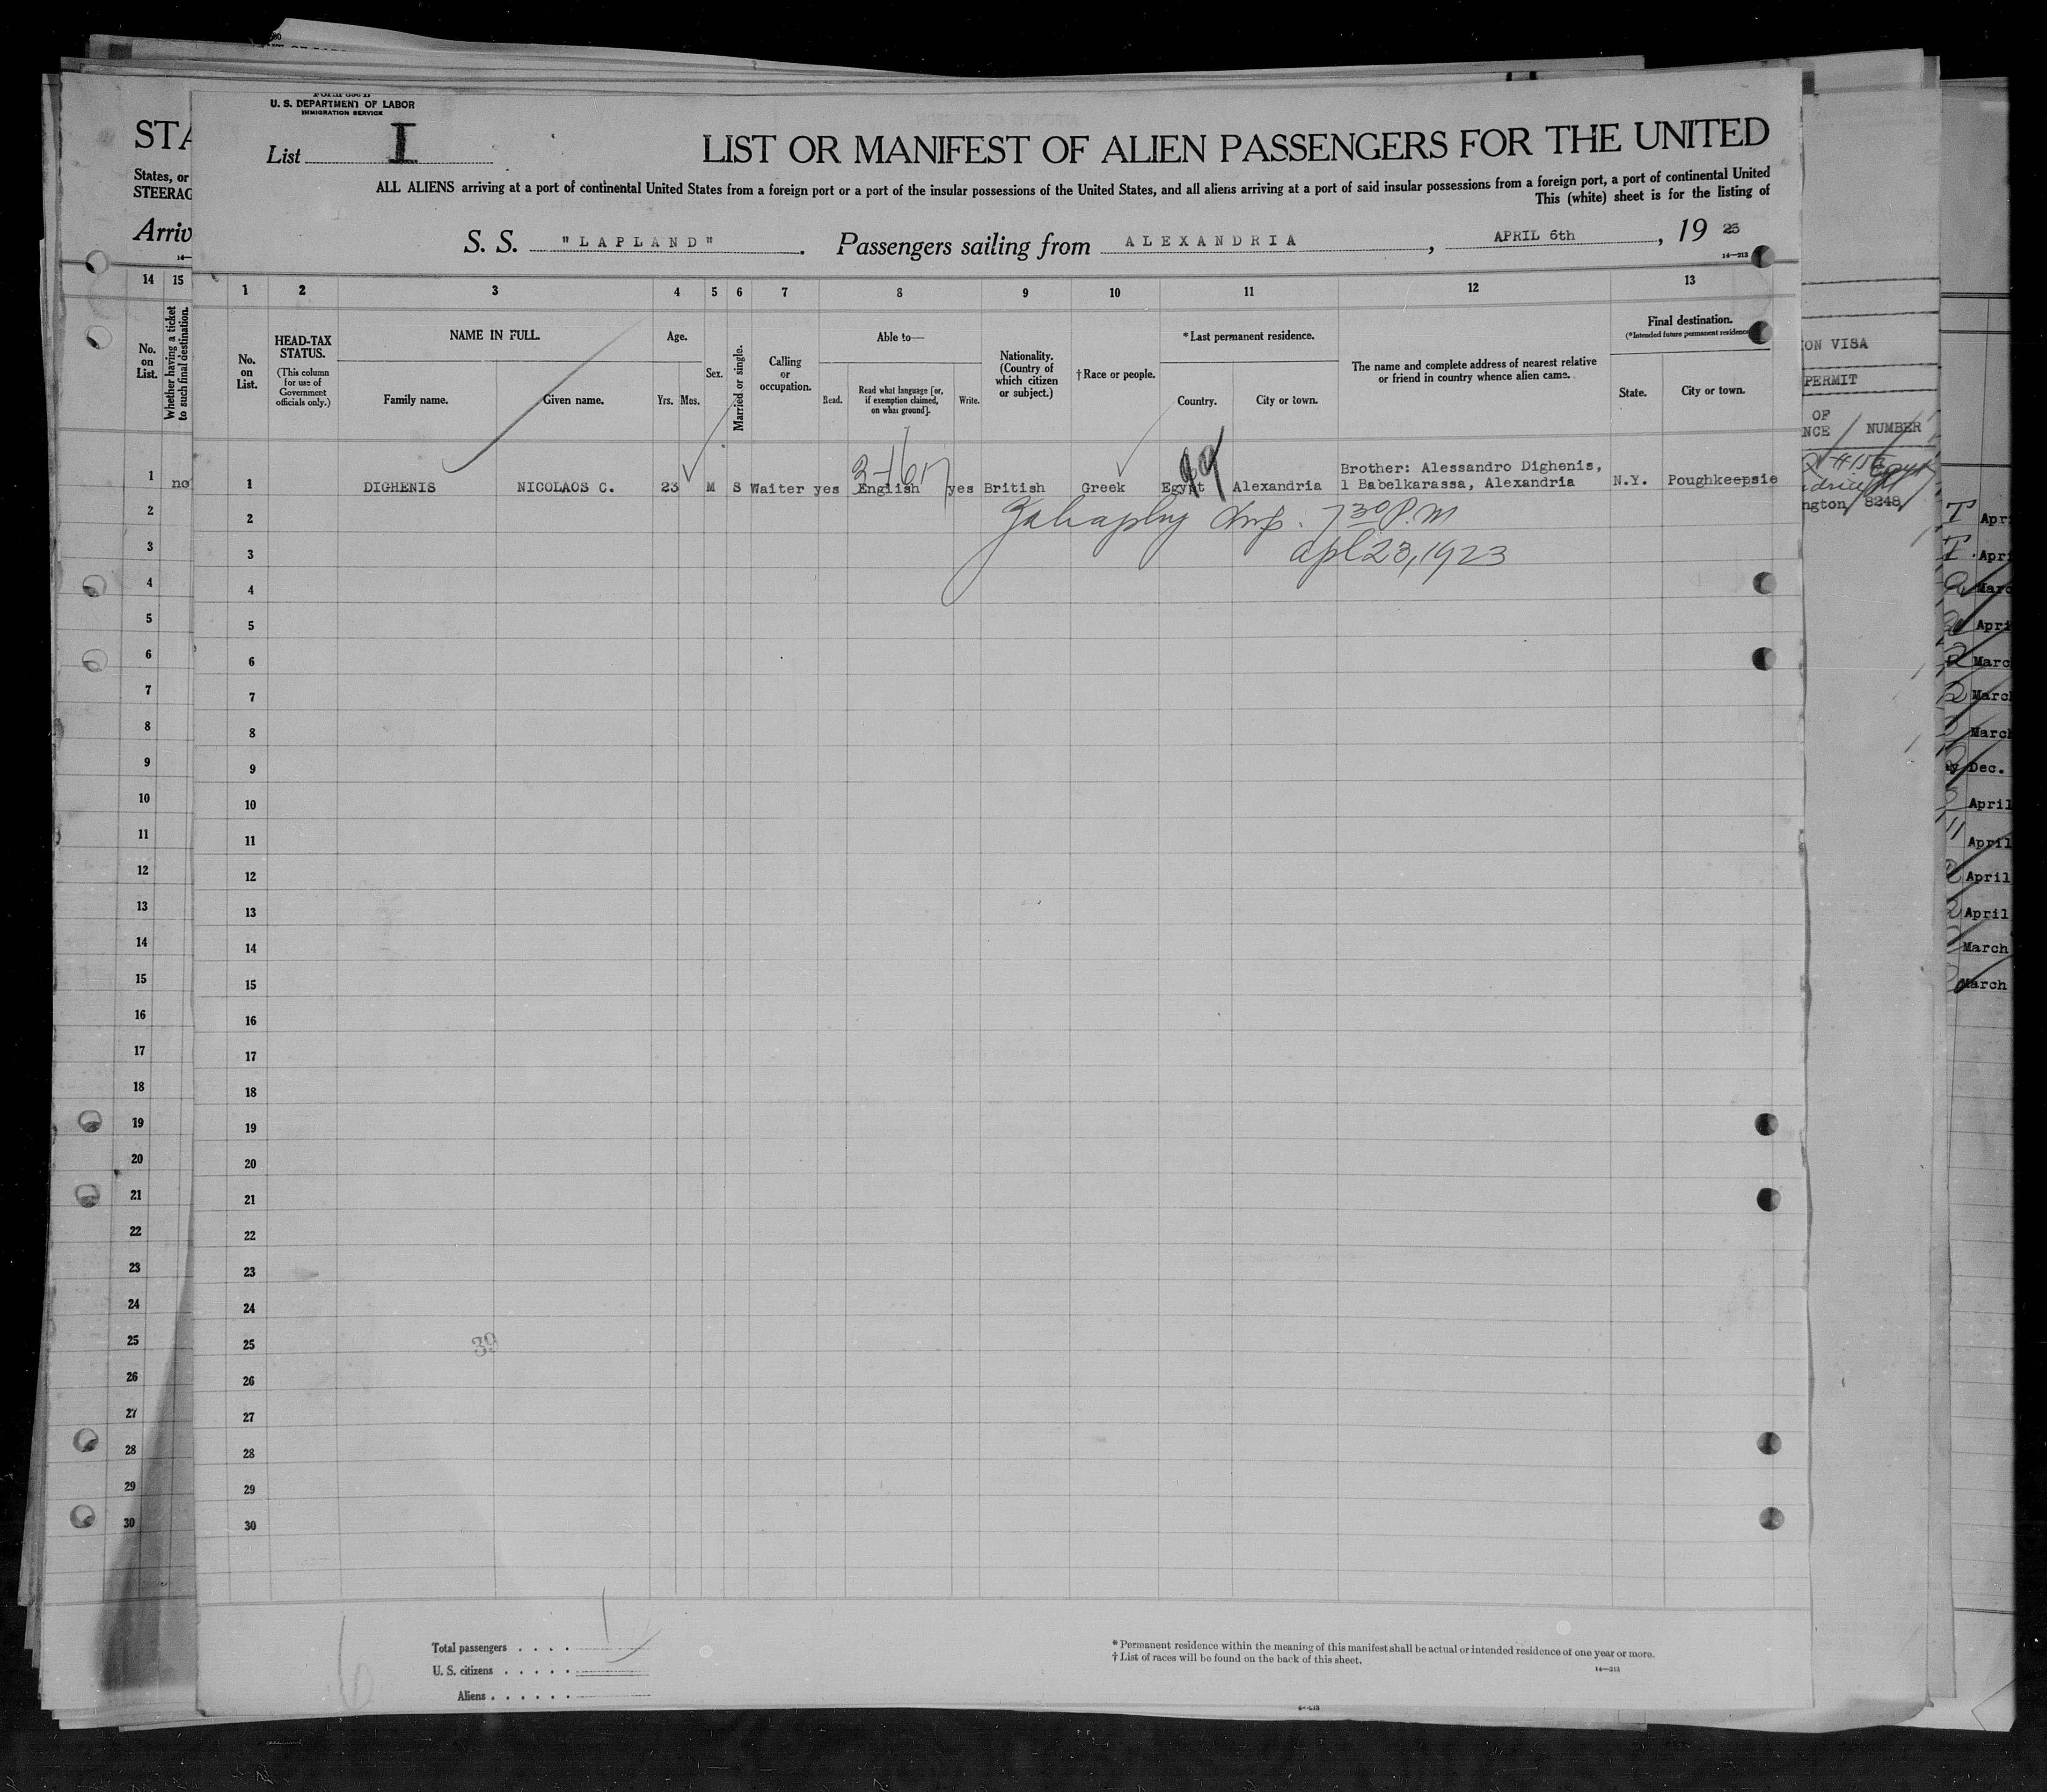 U. S. DEPARTMENT OF LABOR
IMMIGRATION SERVICE
List I
LIST OR MANIFEST OF ALIEN PASSENGERS FOR THE UNITED
ALL ALIENS arriving at a port of continental United States from a foreign port or a port of the insular possessions of the United States, and all aliens arriving at a port of said insular possessions from a foreign port, a port of continental United
This (white) sheet is for the listing of
S. S. "LAPLAND". Passengers sailing from ALEXANDRIA, APRIL 6th, 19 23
14—213
1 2 3 4 5 6 7 8 9 10 11 12 13
No. on List.
HEAD-TAX STATUS.
(This column for use of Government officials only.)
NAME IN FULL.
Family name. Given name.
Age.
Yrs. Mos.
Sex.
Married or single.
Calling or occupation.
Able to—
Read. Read what language [or, if exemption claimed, on what ground]. Write.
Nationality. (Country of which citizen or subject.)
†Race or people.
*Last permanent residence.
Country. City or town.
The name and complete address of nearest relative or friend in country whence alien came.
Final destination.
(*Intended future permanent residence
State. City or town.
1 DIGHENIS NICOLAOS C. 23 M S Waiter yes English yes British Greek Egypt Alexandria Brother: Alessandro Dighenis, 1 Babelkarassa, Alexandria N.Y. Poughkeepsie
2 Insp. 7 30 P.M
3 Apl 23, 1923
4
5
6
7
8
9
10
11
12
13
14
15
16
17
18
19
20
21
22
23
24
25 39
26
27
28
29
30
Total passengers . . . . 1
U. S. citizens . . . . .
Aliens . . . . . .
*Permanent residence within the meaning of this manifest shall be actual or intended residence of one year or more.
†List of races will be found on the back of this sheet.
14—213
STA
States, or
STEERAG
Arriv
14 15
No. on List.
Whether having a ticket to such final destination.
1 no
2
3
4
5
6
7
8
9
10
11
12
13
14
15
16
17
18
19
20
21
22
23
24
25
26
27
28
29
30
ON VISA
PERMIT
OF
NCE NUMBER
ngton 8248
Apr
Apri
Marc
Apri
Marc
March
March
Dec.
April
April
April
April
March
March